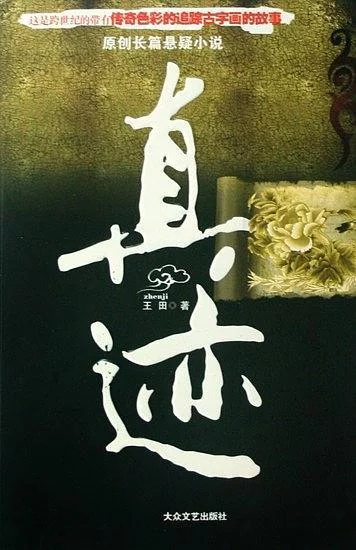 这是跨世纪的带有传奇色彩的追踪古字画的故事
原创长篇悬疑小说
真
迹
zhenji
王田◎著
大众文艺出版社